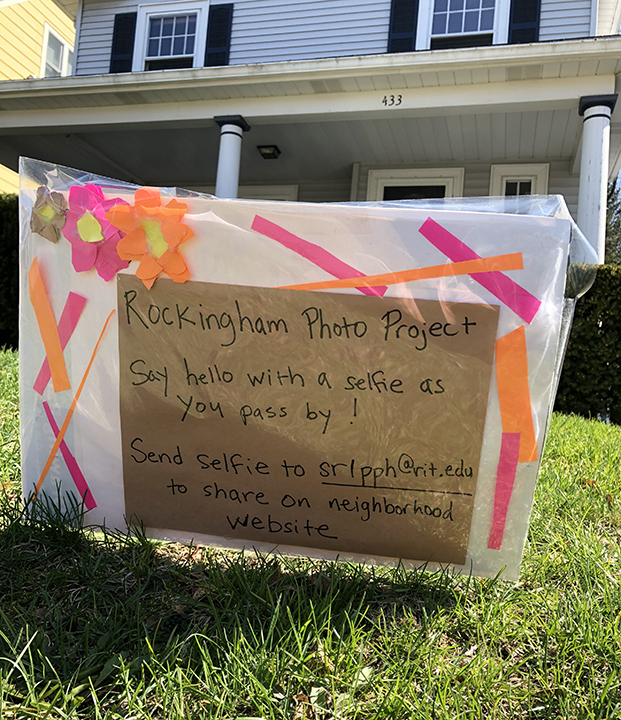 433
Rockingham Photo Project
Say hello with a selfie as
you pass by !
Send selfie to srlpph@rit.edu
to share on neighborhood
website